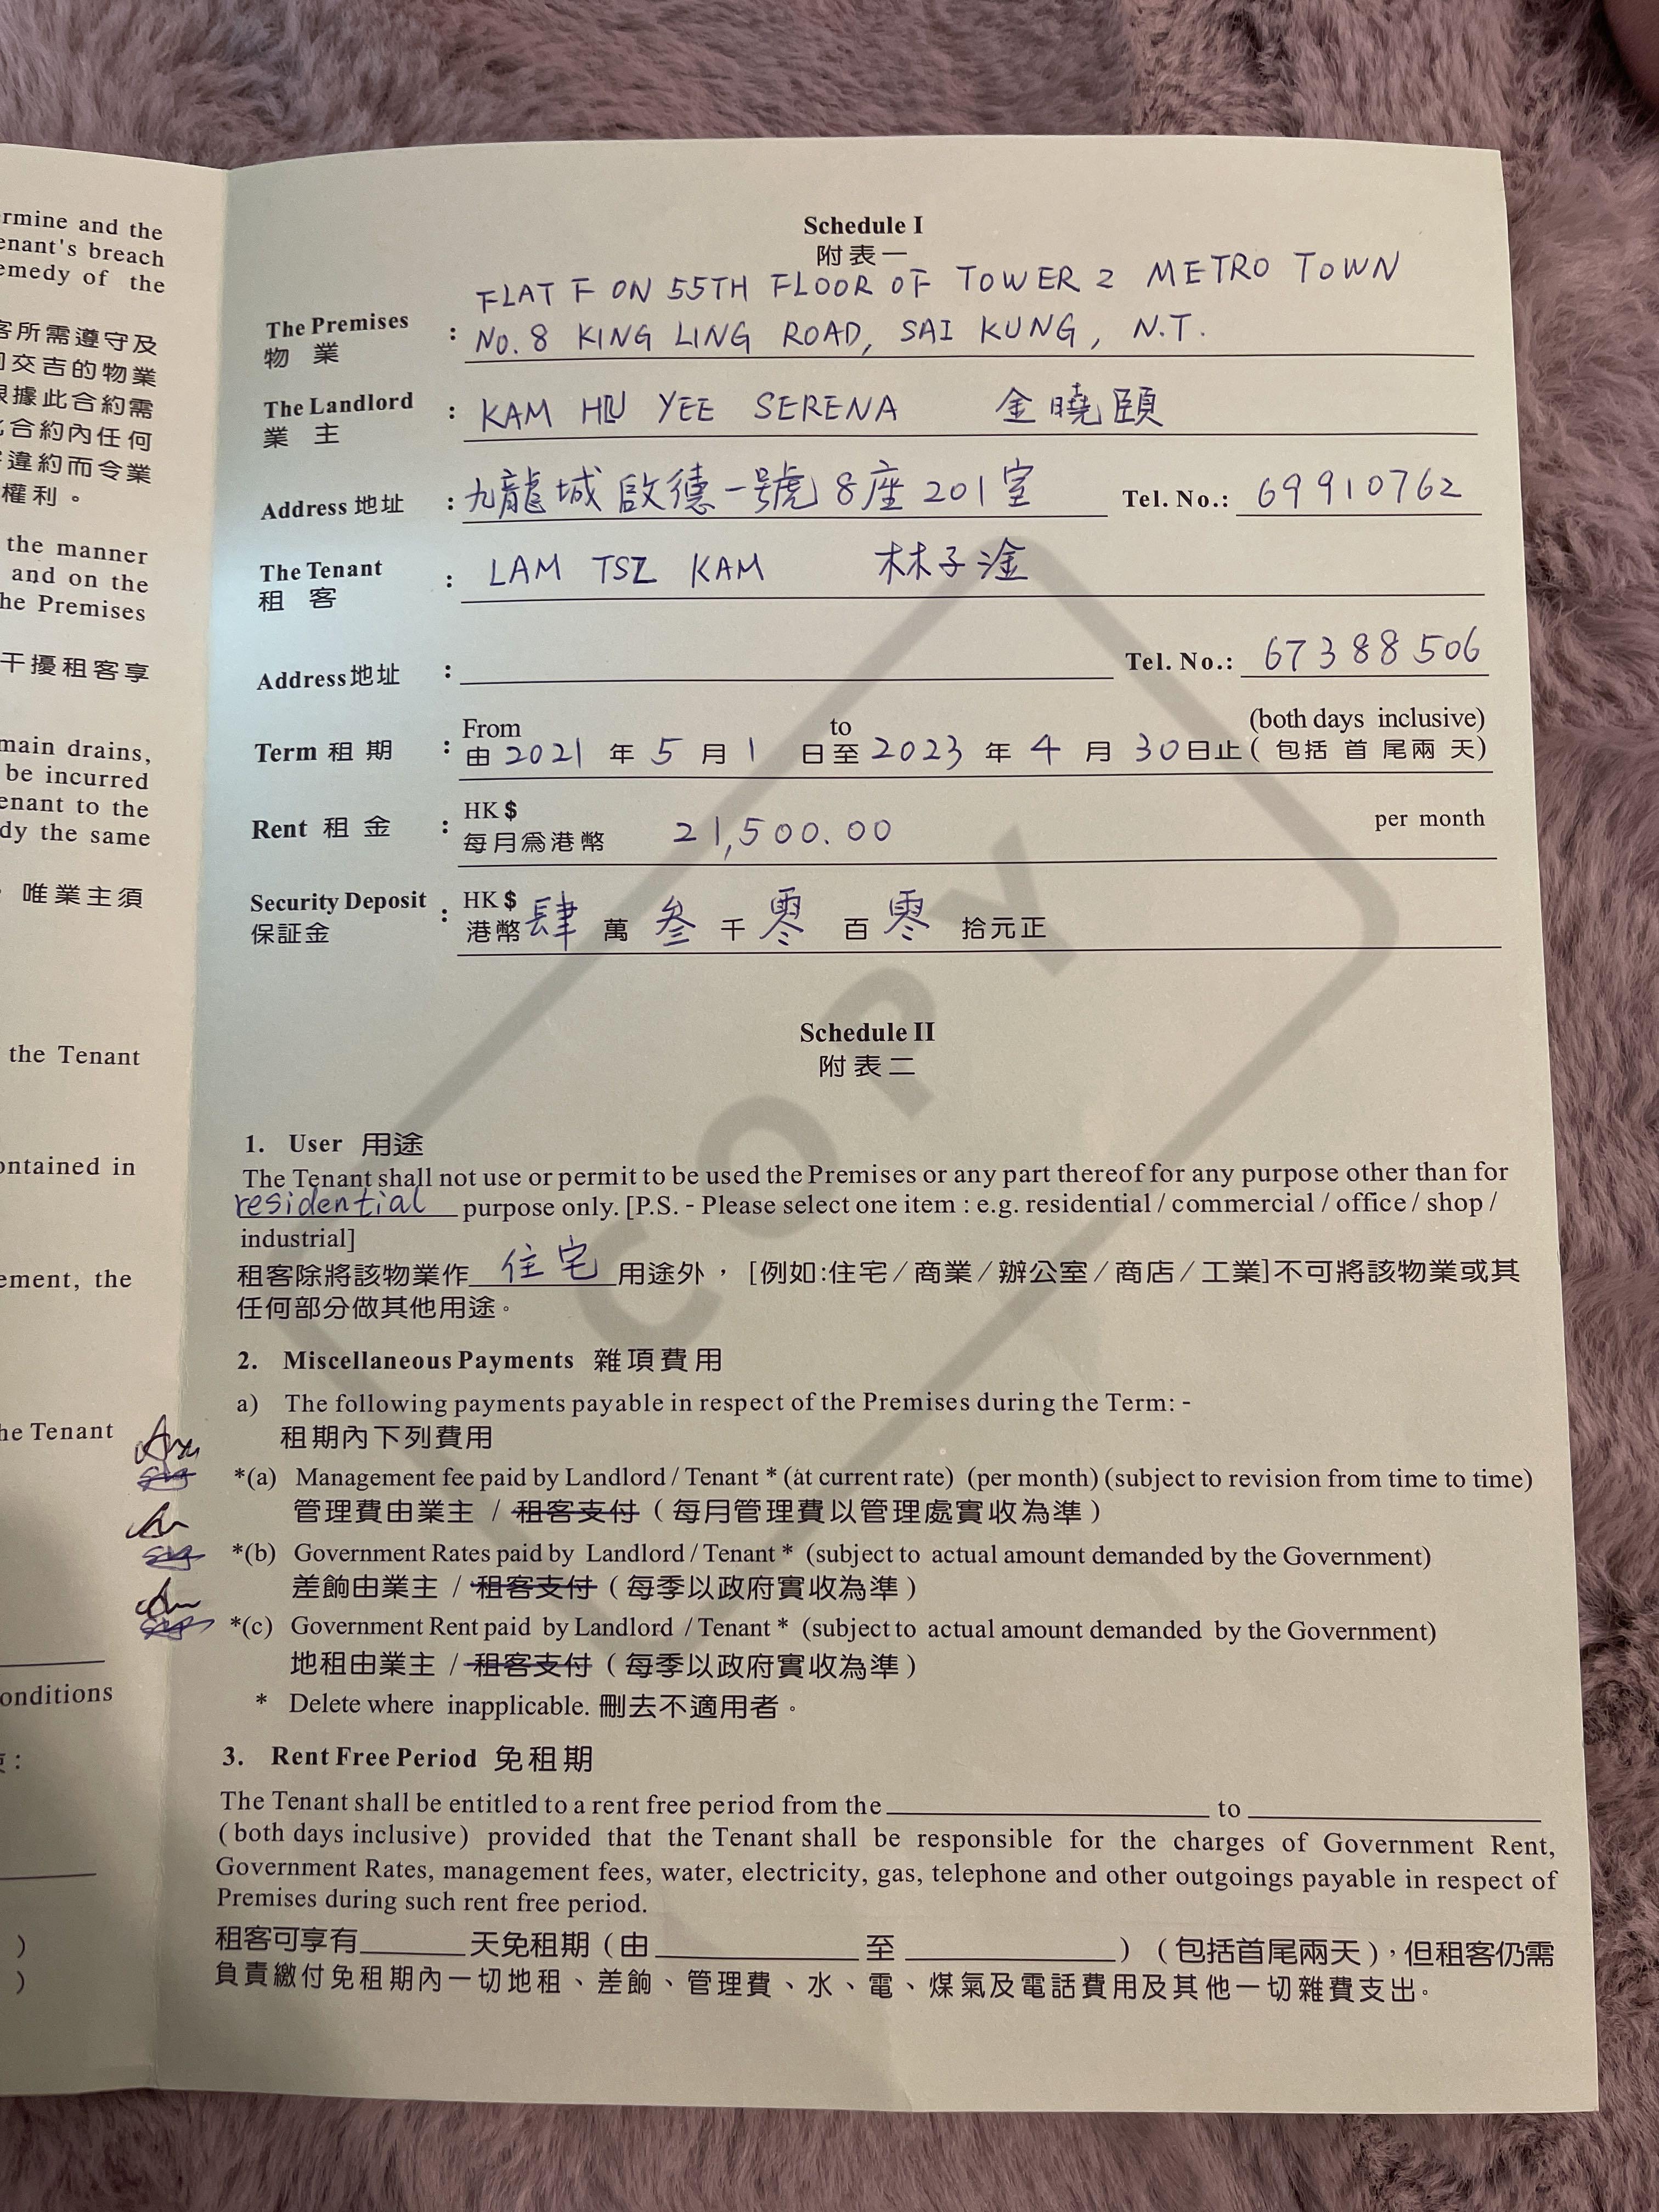 ermine and the
enant's breach
emedy of the
客所需遵守及
交吉的物業
根據此合約需
合約內任何
違約而令業
權利。
the manner
and on the
he Premises
干擾租客享
main drains,
be incurred
enant to the
dy the same
唯業主須
the Tenant
ontained in
ement, the
he Tenant
onditions
:
)
)
Schedule I
附表一
The Premises : FLAT F ON 55TH FLOOR OF TOWER 2 METRO TOWN
物業 NO. 8 KING LING ROAD, SAI KUNG, N.T.
The Landlord : KAM HIU YEE SERENA 金曉頤
業主
Address 地址 : 九龍城啟德一號8座201室 Tel. No.: 69910762
The Tenant : LAM TSZ KAM 林子淦
租客
Address 地址 : Tel. No.: 67388506
From to (both days inclusive)
Term 租期 : 由 2021 年 5 月 1 日至 2023 年 4 月 30 日止 ( 包括首尾兩天)
HK $
Rent 租金 : 每月為港幣 21,500.00 per month
Security Deposit : HK $
保証金 港幣 肆 萬 叁 千 零 百 零 拾元正
COPY
Schedule II
附表二
1. User 用途
The Tenant shall not use or permit to be used the Premises or any part thereof for any purpose other than for
residential purpose only. [P.S. - Please select one item : e.g. residential / commercial / office / shop /
industrial]
租客除將該物業作 住宅 用途外，[例如:住宅/商業/辦公室/商店/工業]不可將該物業或其
任何部分做其他用途。
2. Miscellaneous Payments 雜項費用
a) The following payments payable in respect of the Premises during the Term: -
租期內下列費用
*(a) Management fee paid by Landlord / Tenant * (at current rate) (per month) (subject to revision from time to time)
管理費由業主 / 租客支付 ( 每月管理費以管理處實收為準 )
*(b) Government Rates paid by Landlord / Tenant * (subject to actual amount demanded by the Government)
差餉由業主 / 租客支付 ( 每季以政府實收為準 )
*(c) Government Rent paid by Landlord / Tenant * (subject to actual amount demanded by the Government)
地租由業主 / 租客支付 ( 每季以政府實收為準 )
* Delete where inapplicable. 刪去不適用者。
3. Rent Free Period 免租期
The Tenant shall be entitled to a rent free period from the to
( both days inclusive ) provided that the Tenant shall be responsible for the charges of Government Rent,
Government Rates, management fees, water, electricity, gas, telephone and other outgoings payable in respect of
Premises during such rent free period.
租客可享有 天免租期 ( 由 至 ) ( 包括首尾兩天 ), 但租客仍需
負責繳付免租期內一切地租、差餉、管理費、水、電、煤氣及電話費用及其他一切雜費支出。